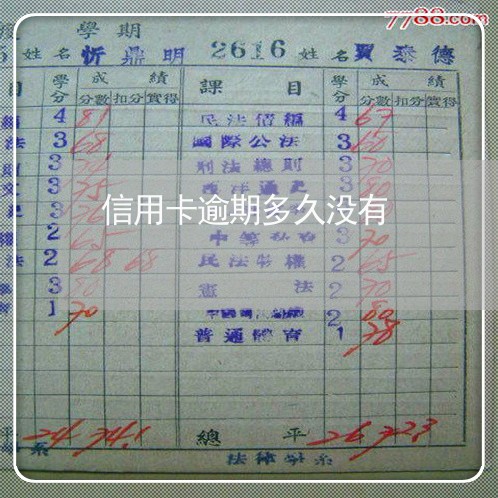 7788.com
學期
姓名 忻鼎明 2616 姓名 賈泰德
目 學分 成績 課目 學分 成績
分數 扣分 實得 分數 扣分 實得
4 81 民法債編 4 67
法 3 68 國際公法 3 60
3 刑法總則 3 70
3 75 西洋通史 3 80
信用卡逾期多久没有
2 65 3 70
法 2 68 68 民法物權 2 65
3 80 憲法 2 70
1 70 2 80
普通體育 1 78
平 24 74.1 總平 26 72.3
系 法律學系